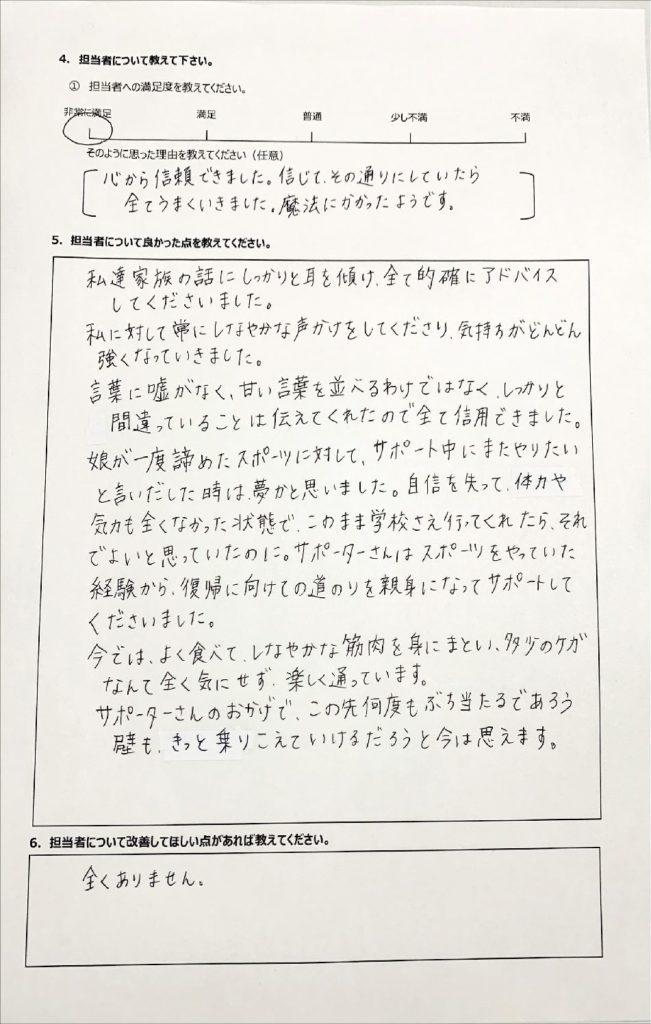 4. 担当者について教えて下さい。
① 担当者への満足度を教えてください。
非常に満足 満足 普通 少し不満 不満
そのように思った理由を教えてください（任意）
心から信頼できました。信じて、その通りにしていたら
全てうまくいきました。魔法にかかったようです。
5. 担当者について良かった点を教えてください。
私達家族の話にしっかりと耳を傾け、全て的確にアドバイス
してくださいました。
私に対して常にしなやかな声かけをしてくださり、気持ちがどんどん
強くなっていきました。
言葉に嘘がなく、甘い言葉を並べるわけではなく、しっかりと
間違っていることは伝えてくれたので全て信用できました。
娘が一度諦めたスポーツに対して、サポート中にまたやりたい
と言いだした時は、夢かと思いました。自信を失って、体力や
気力も全くなかった状態で、このまま学校さえ行ってくれたら、それ
でよいと思っていたのに。サポーターさんはスポーツをやっていた
経験から、復帰に向けての道のりを親身になってサポートして
くださいました。
今では、よく食べて、しなやかな筋肉を身にまとい、多少のケガ
なんて全く気にせず、楽しく通っています。
サポーターさんのおかげで、この先何度もぶち当たるであろう
壁も、きっと乗りこえていけるだろうと今は思えます。
6. 担当者について改善してほしい点があれば教えてください。
全くありません。